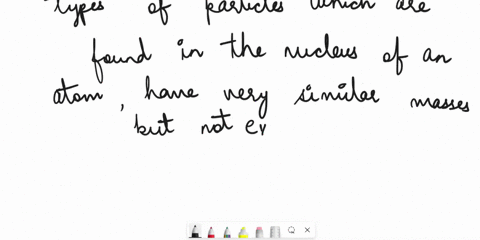 types of particles which are
found in the nucleus of an
atom, have very similar masses
but not ex